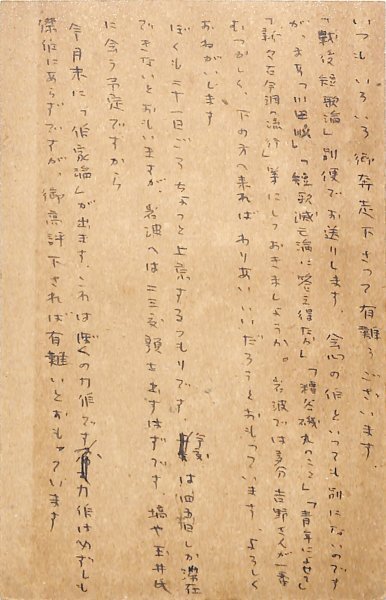 いつもいろいろ御奔走下さつて有難うございます
「戦後短歌論」別便でお送りします。会心の作といつても別にないのです
が、まあ「川田順」、「短歌滅亡論に答え得たか」「糟谷磯丸のこと」「青年によせて」
「新々古今調の流行」等にしておきましようか。岩波では多分吉野さんが一番
むつかしく、下の方へ来ればわりあいいいだろうとおもつています、よろしく
おねがいします
ぼくも二十一日ごろちよつと上京するつもりです。今度は四五日しか滞在
できないとおもいますが、岩波へは二三度顔を出すはずです、塙や玉井氏
に会う予定ですから
今月末に「作家論」が出ます、これはぼくの力作です 力作は必ずしも
傑作にあらずですがが、御高評下されば有難いとおもつています